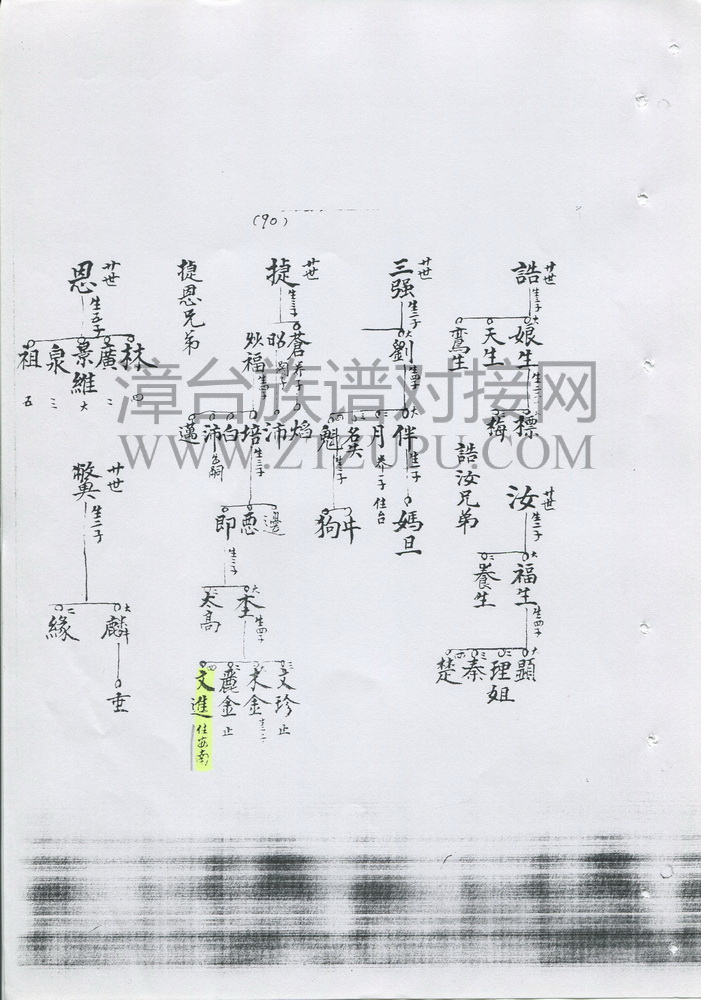 (90)
廿世
誥
生三子
大 娘生
生二子
天生
鸞生
標
梅
誥汝兄弟
廿世
汝
生二子
大 福生
生四子
二 養生
顕
理姐
秦
楚
廿世
三强
生二子
大 劉
生四子
大 伴
生一子
媽旦
月
养一子
住台
名失
魁
生二子
牛
狗
廿世
捷
生三子
蒼
养子
焰
昭
沛
炊福
培
生三子
白
沛
邁
邊
惪
即
生二子
大 本
生四子
太高
文珍
止
木金
生一子
麗金
止
文進
住安南
捷恩兄弟
廿世
恩
生五子
林
四
廣
二
景維
大
泉
三
祖
五
廿世
生二子
大 麟
垂
二 緣
漳台族谱对接网
WWW.ZTZUPU.COM